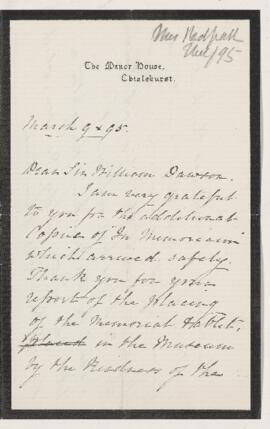 Mrs Redpath
The Manor House,
Chislehurst.
March 9 95.
Dear Sir William Dawson.
I am very grateful
to you for the additional
Copies of "In Memoriam"
which arrived safely.
Thank you for your
report of the placing
of the Memorial Tablet,
placed in the Museum
by the kindness of the